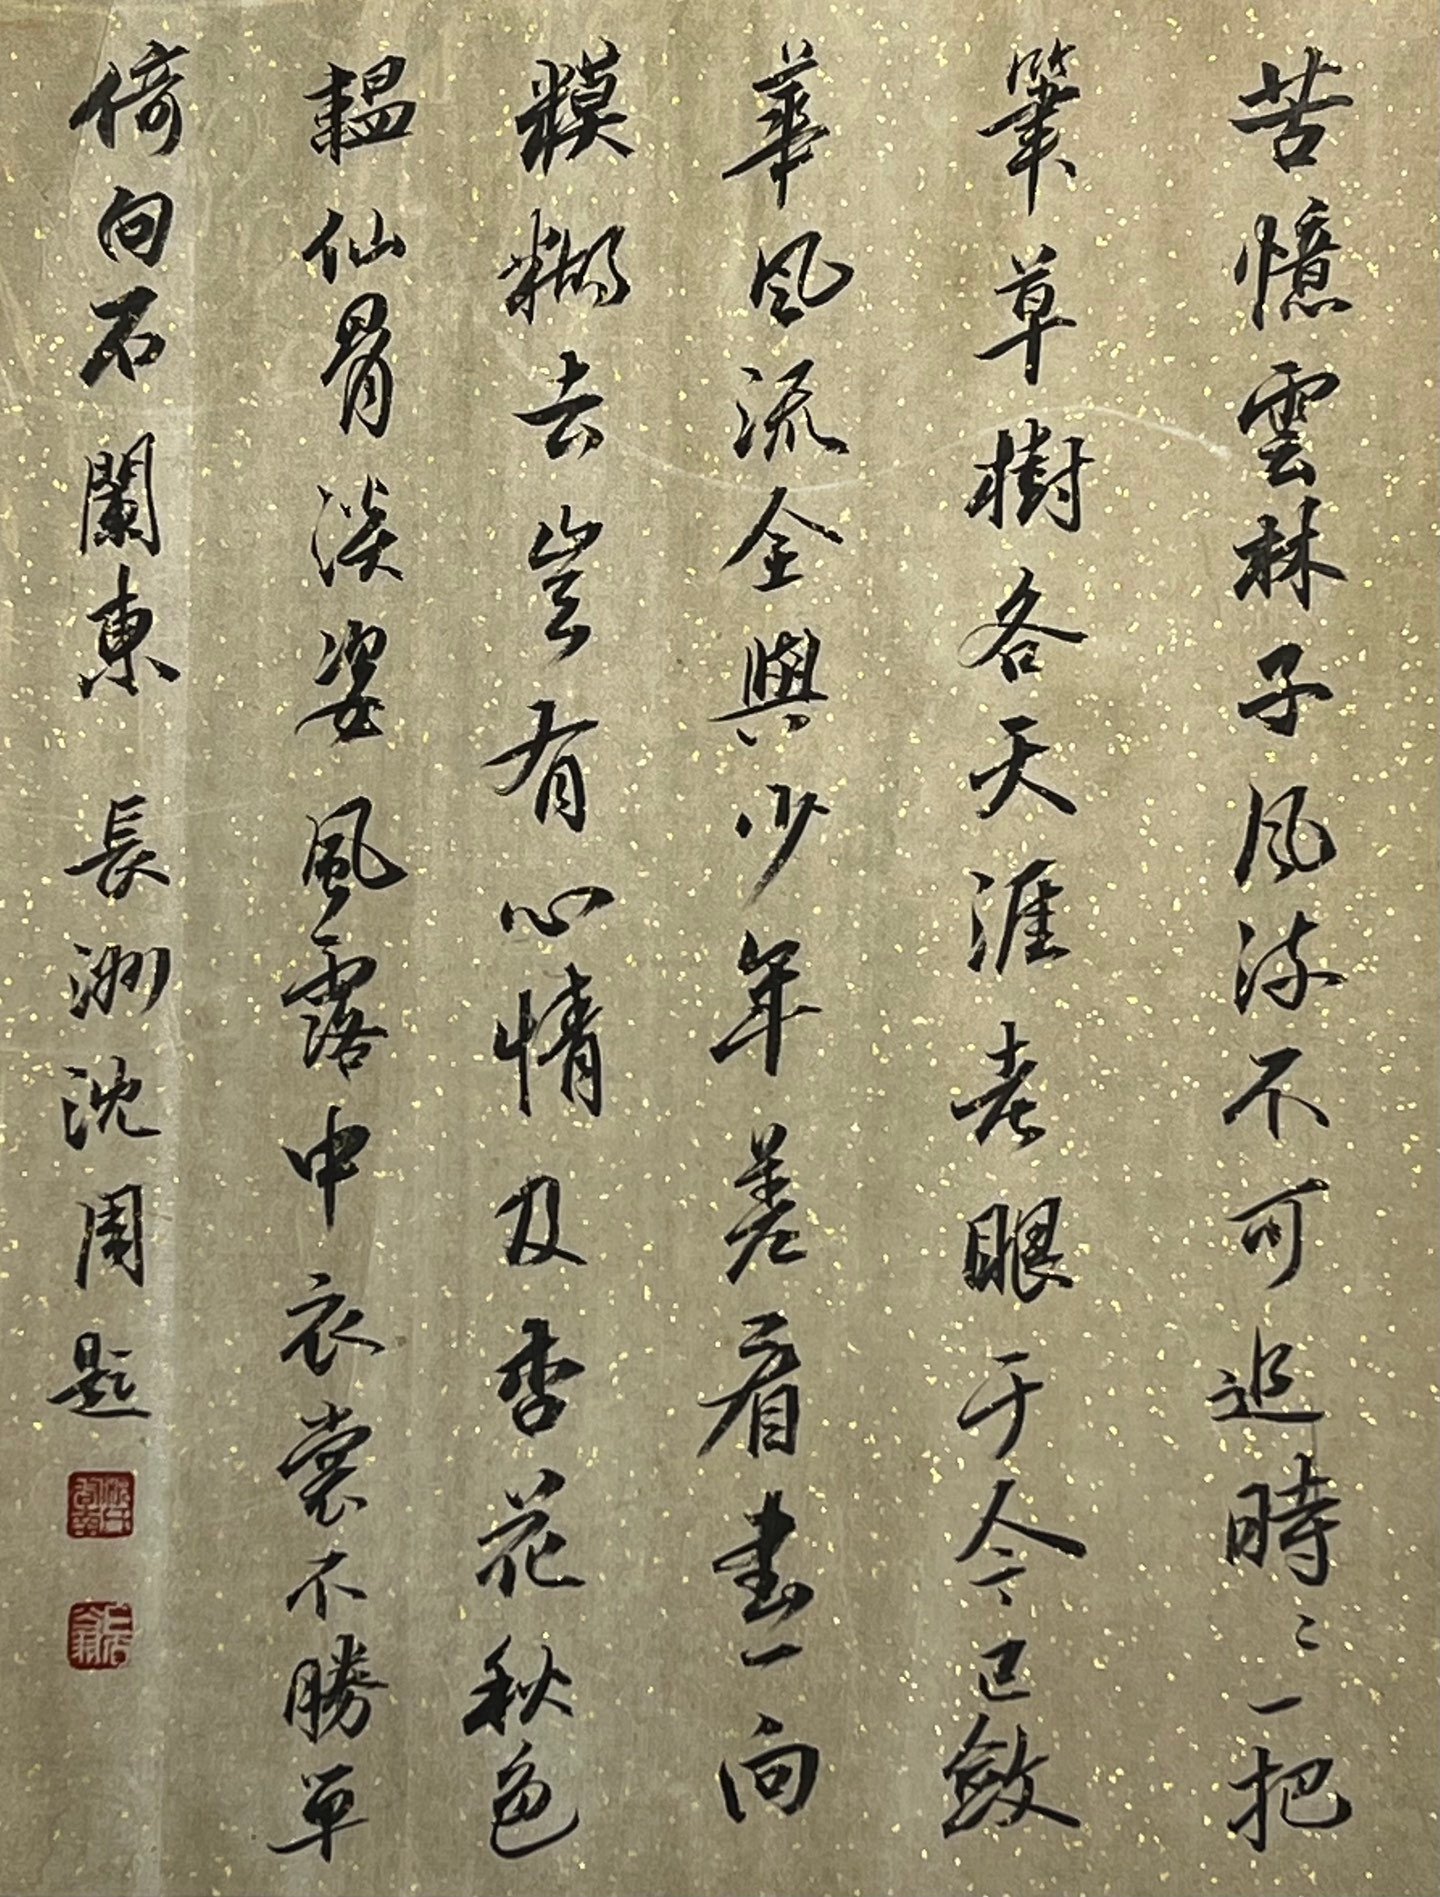 苦憶雲林子風流不可追時〻一把
筆草樹各天涯老眼于今已斂
華風流全與少年差看書一向
糢糊去豈有心情及杏花秋色
韞仙骨淡姿風露中衣裳不勝單
倚向石闌東 長洲沈周題